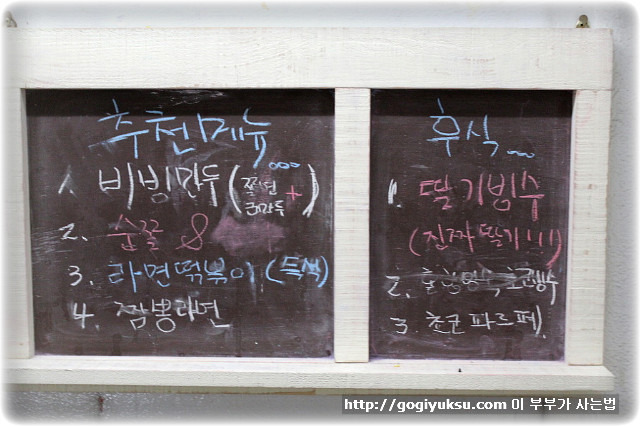 추천메뉴...
1. 비빔만두 (쫄면 + 군만두)
2.
3. 라면떡볶이
4. 짬뽕라면
후식...
1. 딸기빙수
(진짜 딸기!!!)
2.
3. 초코파르페
http://gogiyuksu.com 이 부부가 사는법